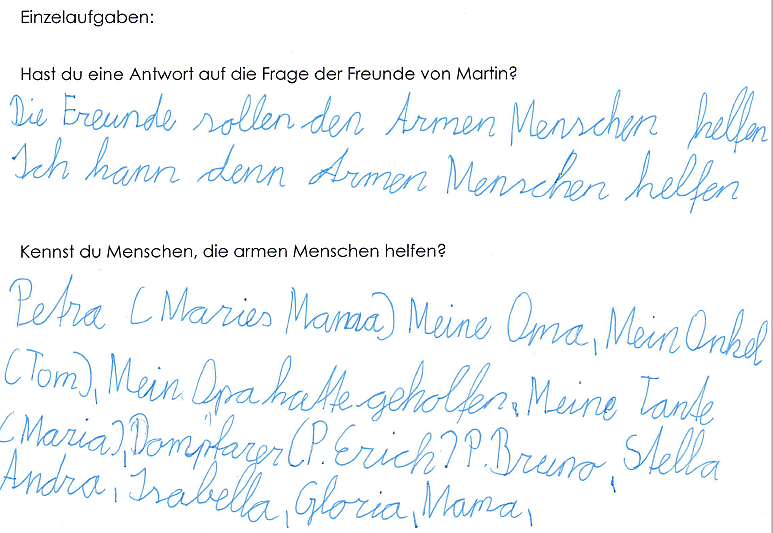 Einzelaufgaben:
Hast du eine Antwort auf die Frage der Freunde von Martin?
Die Freunde sollen den Armen Menschen helfen
Ich kann denn Armen Menschen helfen
Kennst du Menschen, die armen Menschen helfen?
Petra (Maries Mama) Meine Oma, Mein Onkel
(Tom), Mein Opa hatte geholfen, Meine Tante
(Maria), Dompfarer (P. Erich) P. Bruno, Stella
Andra, Isabella, Gloria, Mama,